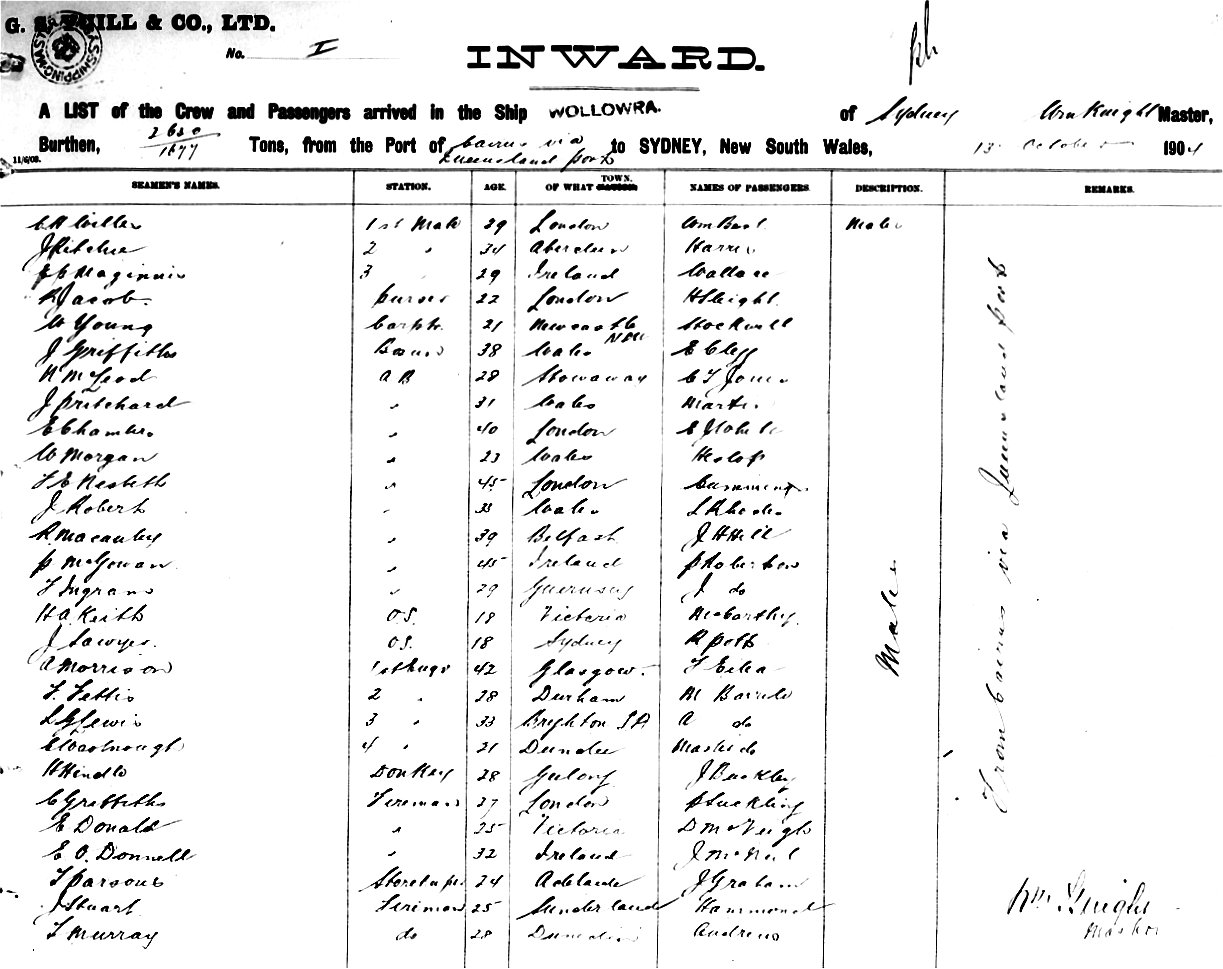 G. HILL & CO., LTD.
No. I
INWARD.
A LIST of the Crew and Passengers arrived in the Ship WOLLOWRA. of Sydney Wm Knight Master,
Burthen, 2630 / 1677 Tons, from the Port of Cairns via Queensland ports to SYDNEY, New South Wales, 13 October 1904
11/6/03.
SEAMEN'S NAMES. STATION. AGE. OF WHAT TOWN. NAMES OF PASSENGERS. DESCRIPTION. REMARKS.
1st Mate 29 London Male
J Ritchie 2 " 34 Aberdeen Harris
Maginnis 3 " 29 Ireland Wallace
R Jacob. purser 22 London H Sleight
W Young Carptr. 21 Newcastle NSW Stockwell
J Griffiths Bosun 38 Wales E Clegg
N McLeod AB 28 Stowaway C T Jones
J Pritchard " 31 Wales Martin
E Chambers " 40 London
W Morgan " 23 Wales Heslop
T E Nesbeth " 45 London Cummings
J Robert " 33 Wales L Rhodes
R Macauley " 39 Belfast J H Hill
P McGowan " 45 Ireland P Robertson
T Ingram " 29 Guernsey J do
H A Keith O.S. 19 Victoria McCarthy
J Sawyer. O.S. 18 Sydney R Pott
A Morrison 1st Engr 42 Glasgow T
F Fettis 2 " 28 Durham M
L G Lewis 3 " 33 Brighton SA A do
4 " 21 Dundee
H Hindle Donkey 28 Geelong J Buckley
C Griffiths Fireman 27 London P Suckling
E Donald " 35 Victoria D McVeigh
E O. Donnell " 32 Ireland J McNeil
T Parsons Storekeeper 24 Adelaide J Graham
J Stuart Fireman 25 Sunderland Hammond
T Murray do 28 Dunedin Andrews
Males
From Cairns via Queensland ports
Wm Knight
Master